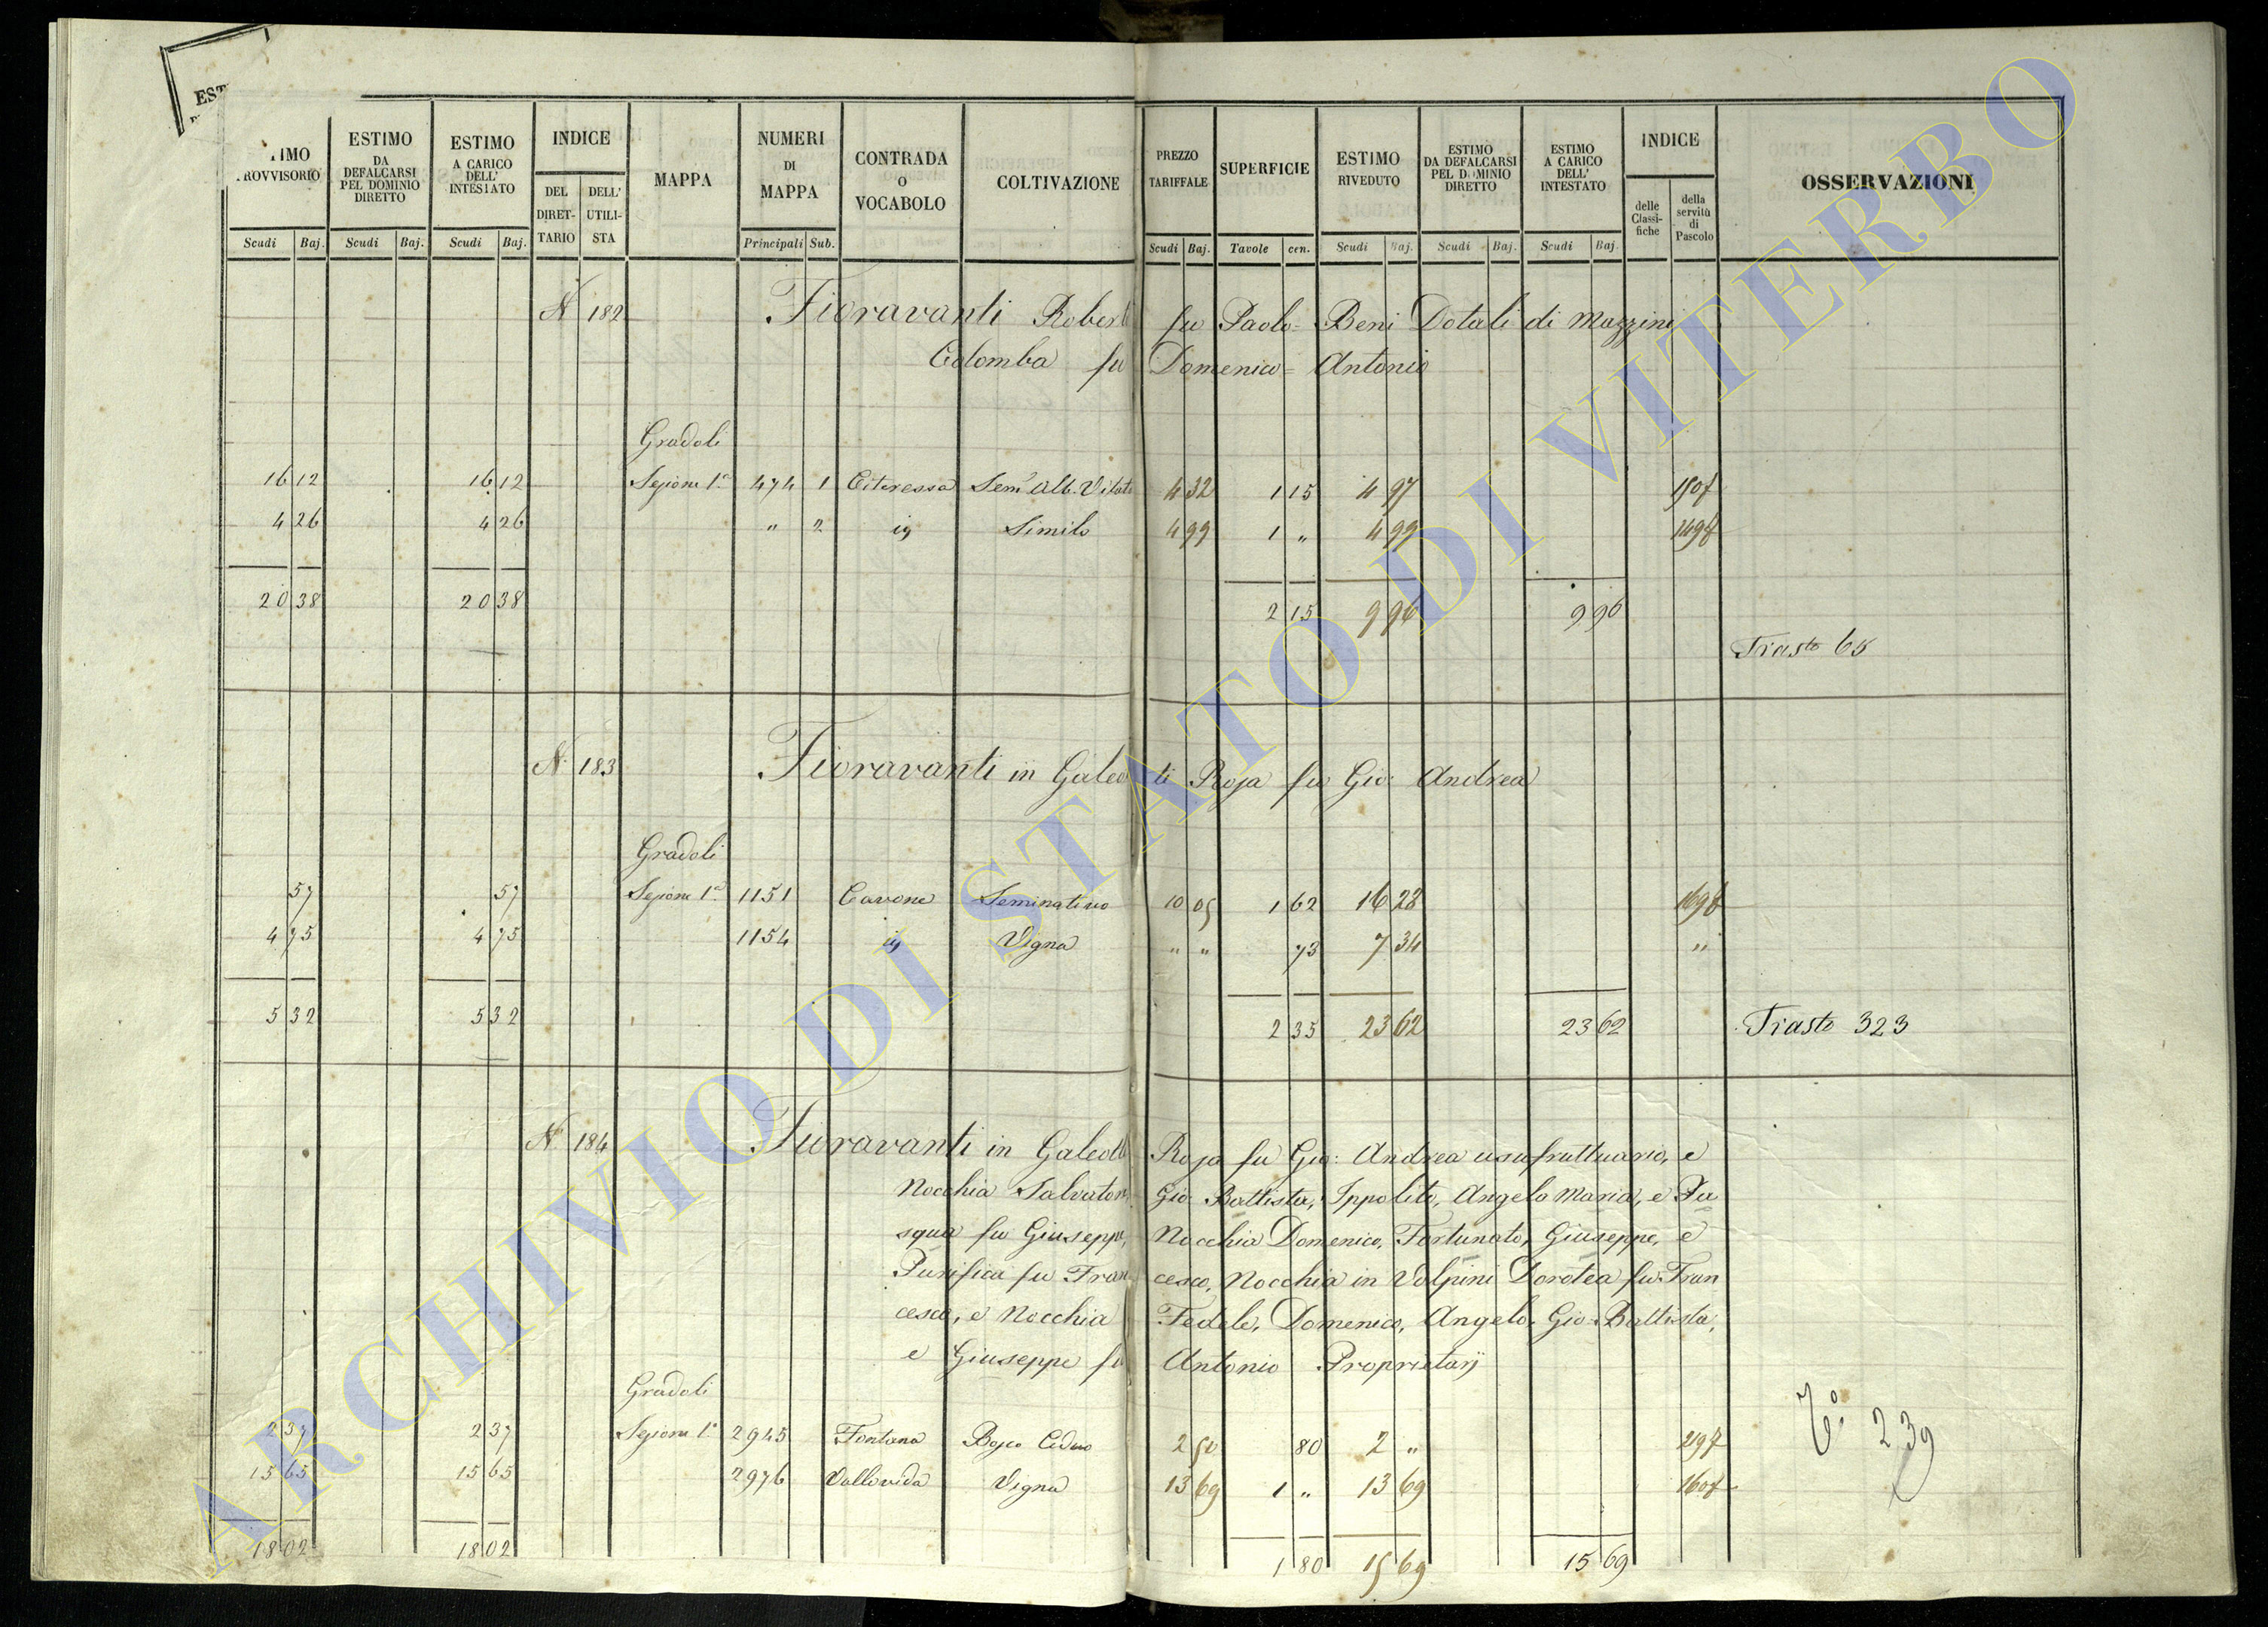 EST
IMO ROVVISORIO Scudi Baj.
ESTIMO DA DEFALCARSI PEL DOMINIO DIRETTO Scudi Baj.
ESTIMO A CARICO DELL' INTESTATO Scudi Baj.
INDICE DEL DIRETTARIO DELL' UTILISTA
MAPPA
NUMERI DI MAPPA Principali Sub.
CONTRADA O VOCABOLO
COLTIVAZIONE
PREZZO TARIFFALE Scudi Baj.
SUPERFICIE Tavole cen.
ESTIMO RIVEDUTO Scudi Baj.
ESTIMO DA DEFALCARSI PEL DOMINIO DIRETTO Scudi Baj.
ESTIMO A CARICO DELL' INTESTATO Scudi Baj.
INDICE delle Classifiche della servitù di Pascolo
OSSERVAZIONI
N 182 Fioravanti Robert fu Paolo - Beni Dotali di Mazzini
Colomba fu Domenico = Antonio
Gradoli
16 12 16 12 Sezione 1a 474 1 Citeressa Sem Alb. Vitato 4 32 1 15 4 97
4 26 4 26 " 2 id Simile 4 99 1 " 4 99
20 38 20 38 2 15 9 96 9 96
Trasto 65
N. 183 Fioravanti in Galeotti Rosa fu Gio: Andrea
Gradoli
57 57 Sezione 1a 1151 Cavone Seminativo 10 05 1 62 16 28
4 75 4 75 1154 id Vigna " " 73 7 34 "
5 32 5 32 2 35 23 62 23 62 Trasto 323
N 184 Fioravanti in Galeotti Rosa fu Gio: Andrea usufruttuario, e
Nocchia Salvatore, Gio Battista, Ippolito, Angelo Maria, e Pa
squa fu Giuseppe, Nocchia Domenico, Fortunato, Giuseppe, e
Purifica fu Francesco, Nocchia in Volpini Dorotea fu Fran
cesco, e Nocchia Fedele, Domenico, Angelo, Gio Battista,
e Giuseppe fu Antonio Proprietarj
Gradoli
2 37 2 37 Sezione 1a 2945 Fontana Bosco Ceduo 2 50 80 2 "
15 65 15 65 2976 Vallovida Vigna 13 69 1 " 13 69
18 02 18 02 1 80 15 69 15 69
239
ARCHIVIO DI STATO DI VITERBO